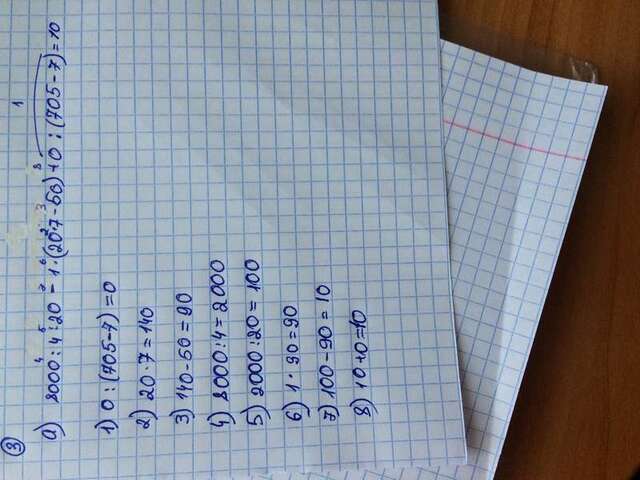 ③
1
a) 8000 : 4 : 20 - 1 · (20·7-50) + 0 : (705-7) = 10
1) 0 : (705-7) = 0
2) 20 · 7 = 140
3) 140 - 50 = 90
4) 8000 : 4 = 2000
5) 2000 : 20 = 100
6) 1 · 90 = 90
7) 100 - 90 = 10
8) 10 + 0 = 10